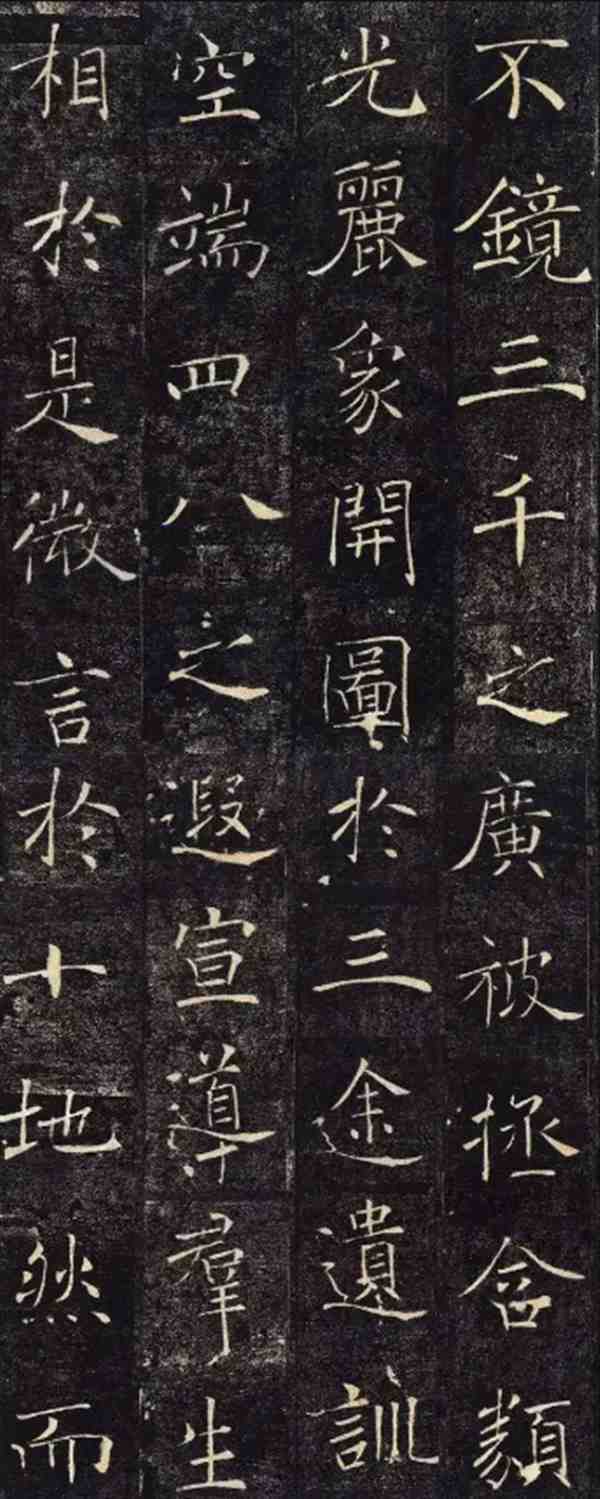 不鏡三千之廣被拯含類
光麗象開圖於三途遺訓
空端四八之遐宣導羣生
相於是微言於十地然而